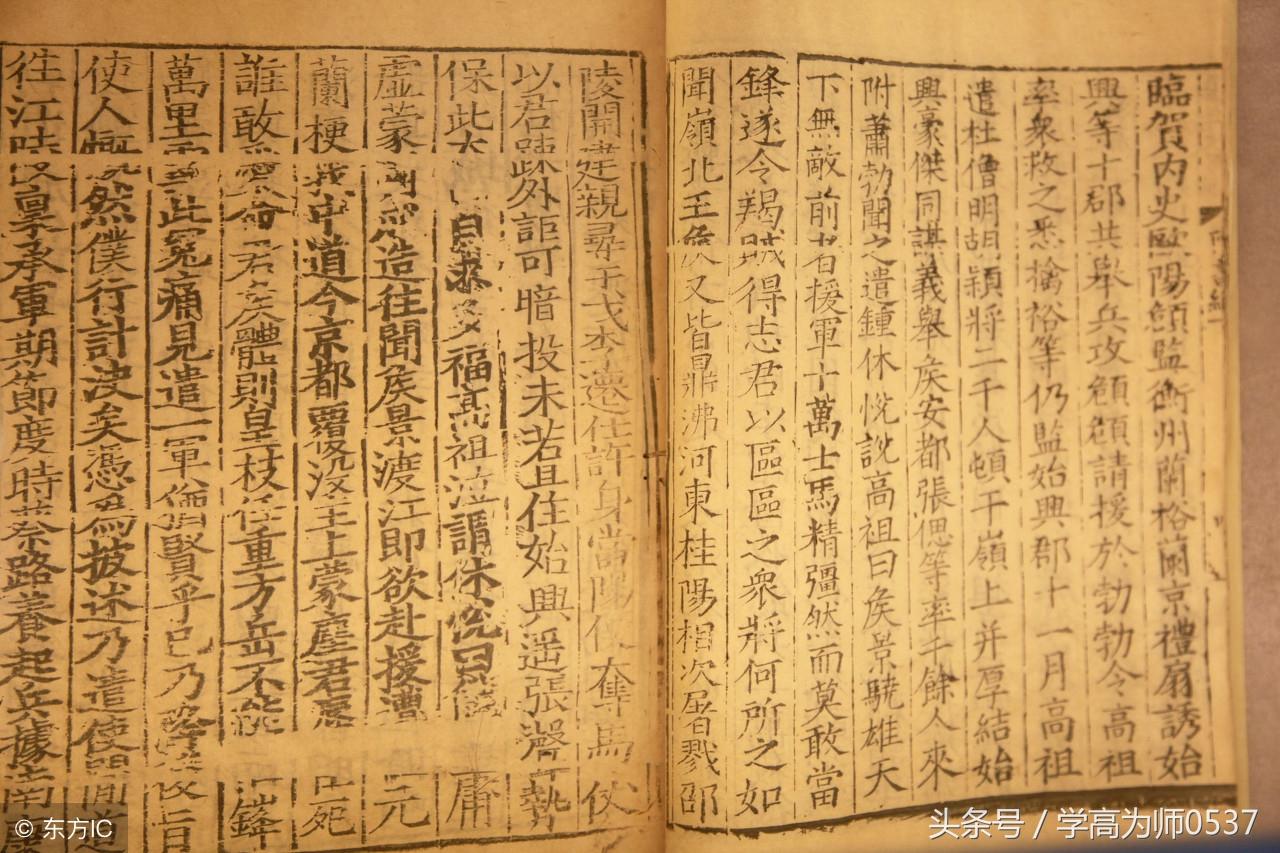 臨賀内史歐陽頠監衡州蘭裕蘭京禮扇誘始
興等十郡共舉兵攻頠頠請援於勃勃令高祖
率衆救之悉擒裕等仍監始興郡十一月高祖
遣杜僧明胡穎將二千人頓于嶺上并厚結始
興豪傑同謀義舉侯安都張偲等率千餘人來
附蕭勃聞之遣鍾休悅說高祖曰侯景驍雄天
下無敵前者援軍十萬士馬精彊然而莫敢當
鋒遂令羯賊得志君以區區之衆將何所之如
聞嶺北王侯又皆鼎沸河東桂陽相次屠戮邵
陵開建親尋干戈李遷仕許身當陽便奪馬仗
以君疎外詎可暗投未若且住始興遥張聲勢
保此太自求多福高祖泣謂休悅曰僕庸
虛蒙國成造往聞侯景渡江即欲赴援遭元
蘭梗我中道今京都覆沒主上蒙塵君辱死
誰敢愛命君侯體則皇枝任重方岳不能摧鋒
萬里雪此冤痛見遣一軍猶賢乎已乃降後旨
使人慨然僕行計決矣憑為披述乃遣使間道
往江陵稟承軍期節度時蔡路養起兵據南康
© 东方IC
头条号 / 学高为师0537